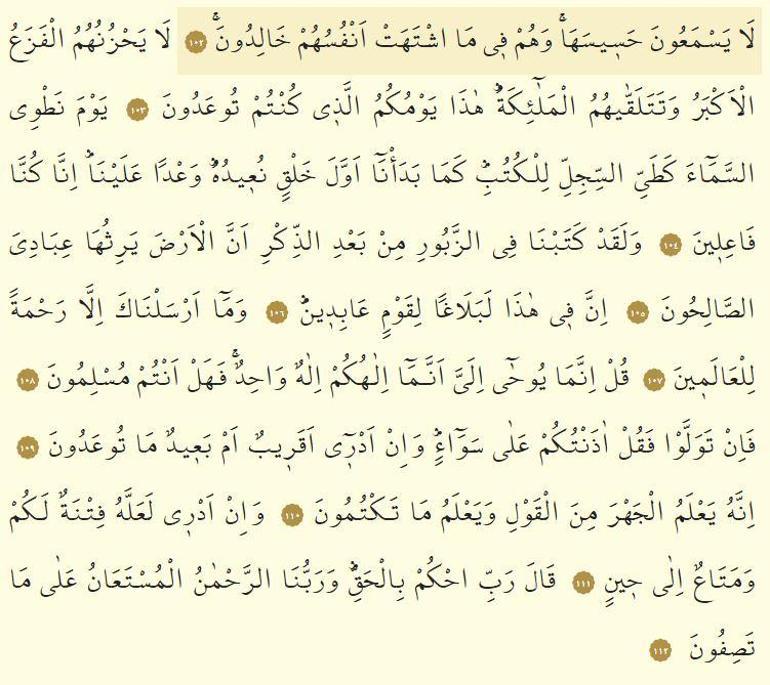 لَا يَسْمَعُونَ حَسٖيسَهَاۚ وَهُمْ فٖى مَا اشْتَهَتْ اَنْفُسُهُمْ خَالِدُونَۚ ﴿١٠٢﴾ لَا يَحْزُنُهُمُ الْفَزَعُ
الْاَكْبَرُ وَتَتَلَقّٰيهُمُ الْمَلٰٓئِكَةُؕ هٰذَا يَوْمُكُمُ الَّذٖى كُنْتُمْ تُوعَدُونَ ﴿١٠٣﴾ يَوْمَ نَطْوِى
السَّمَٓاءَ كَطَىِّ السِّجِلِّ لِلْكُتُبِؕ كَمَا بَدَأْنَٓا اَوَّلَ خَلْقٍ نُعٖيدُهُؕ وَعْدًا عَلَيْنَاؕ اِنَّا كُنَّا
فَاعِلٖينَ ﴿١٠٤﴾ وَلَقَدْ كَتَبْنَا فِى الزَّبُورِ مِنْ بَعْدِ الذِّكْرِ اَنَّ الْاَرْضَ يَرِثُهَا عِبَادِىَ
الصَّالِحُونَ ﴿١٠٥﴾ اِنَّ فٖى هٰذَا لَبَلَاغًا لِقَوْمٍ عَابِدٖينَؕ ﴿١٠٦﴾ وَمَٓا اَرْسَلْنَاكَ اِلَّا رَحْمَةً
لِلْعَالَمٖينَ ﴿١٠٧﴾ قُلْ اِنَّمَا يُوحٰٓى اِلَىَّ اَنَّمَٓا اِلٰهُكُمْ اِلٰهٌ وَاحِدٌۚ فَهَلْ اَنْتُمْ مُسْلِمُونَ ﴿١٠٨﴾
فَاِنْ تَوَلَّوْا فَقُلْ اٰذَنْتُكُمْ عَلٰى سَوَٓاءٍؕ وَاِنْ اَدْرٖٓى اَقَرٖيبٌ اَمْ بَعٖيدٌ مَا تُوعَدُونَ ﴿١٠٩﴾
اِنَّهُ يَعْلَمُ الْجَهْرَ مِنَ الْقَوْلِ وَيَعْلَمُ مَا تَكْتُمُونَ ﴿١١٠﴾ وَاِنْ اَدْرٖى لَعَلَّهُ فِتْنَةٌ لَكُمْ
وَمَتَاعٌ اِلٰى حٖينٍ ﴿١١١﴾ قَالَ رَبِّ احْكُمْ بِالْحَقِّؕ وَرَبُّنَا الرَّحْمٰنُ الْمُسْتَعَانُ عَلٰى مَا
تَصِفُونَ ﴿١١٢﴾